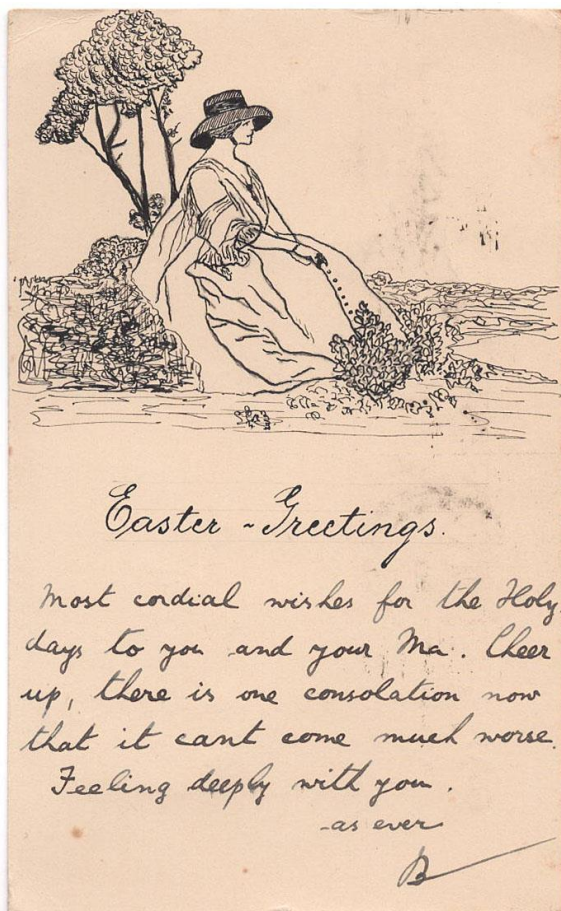 Easter - Greetings.
Most cordial wishes for the Holy
days to you and your Ma. Cheer
up, there is one consolation now
that it cant come much worse.
Feeling deeply with you.
as ever
B